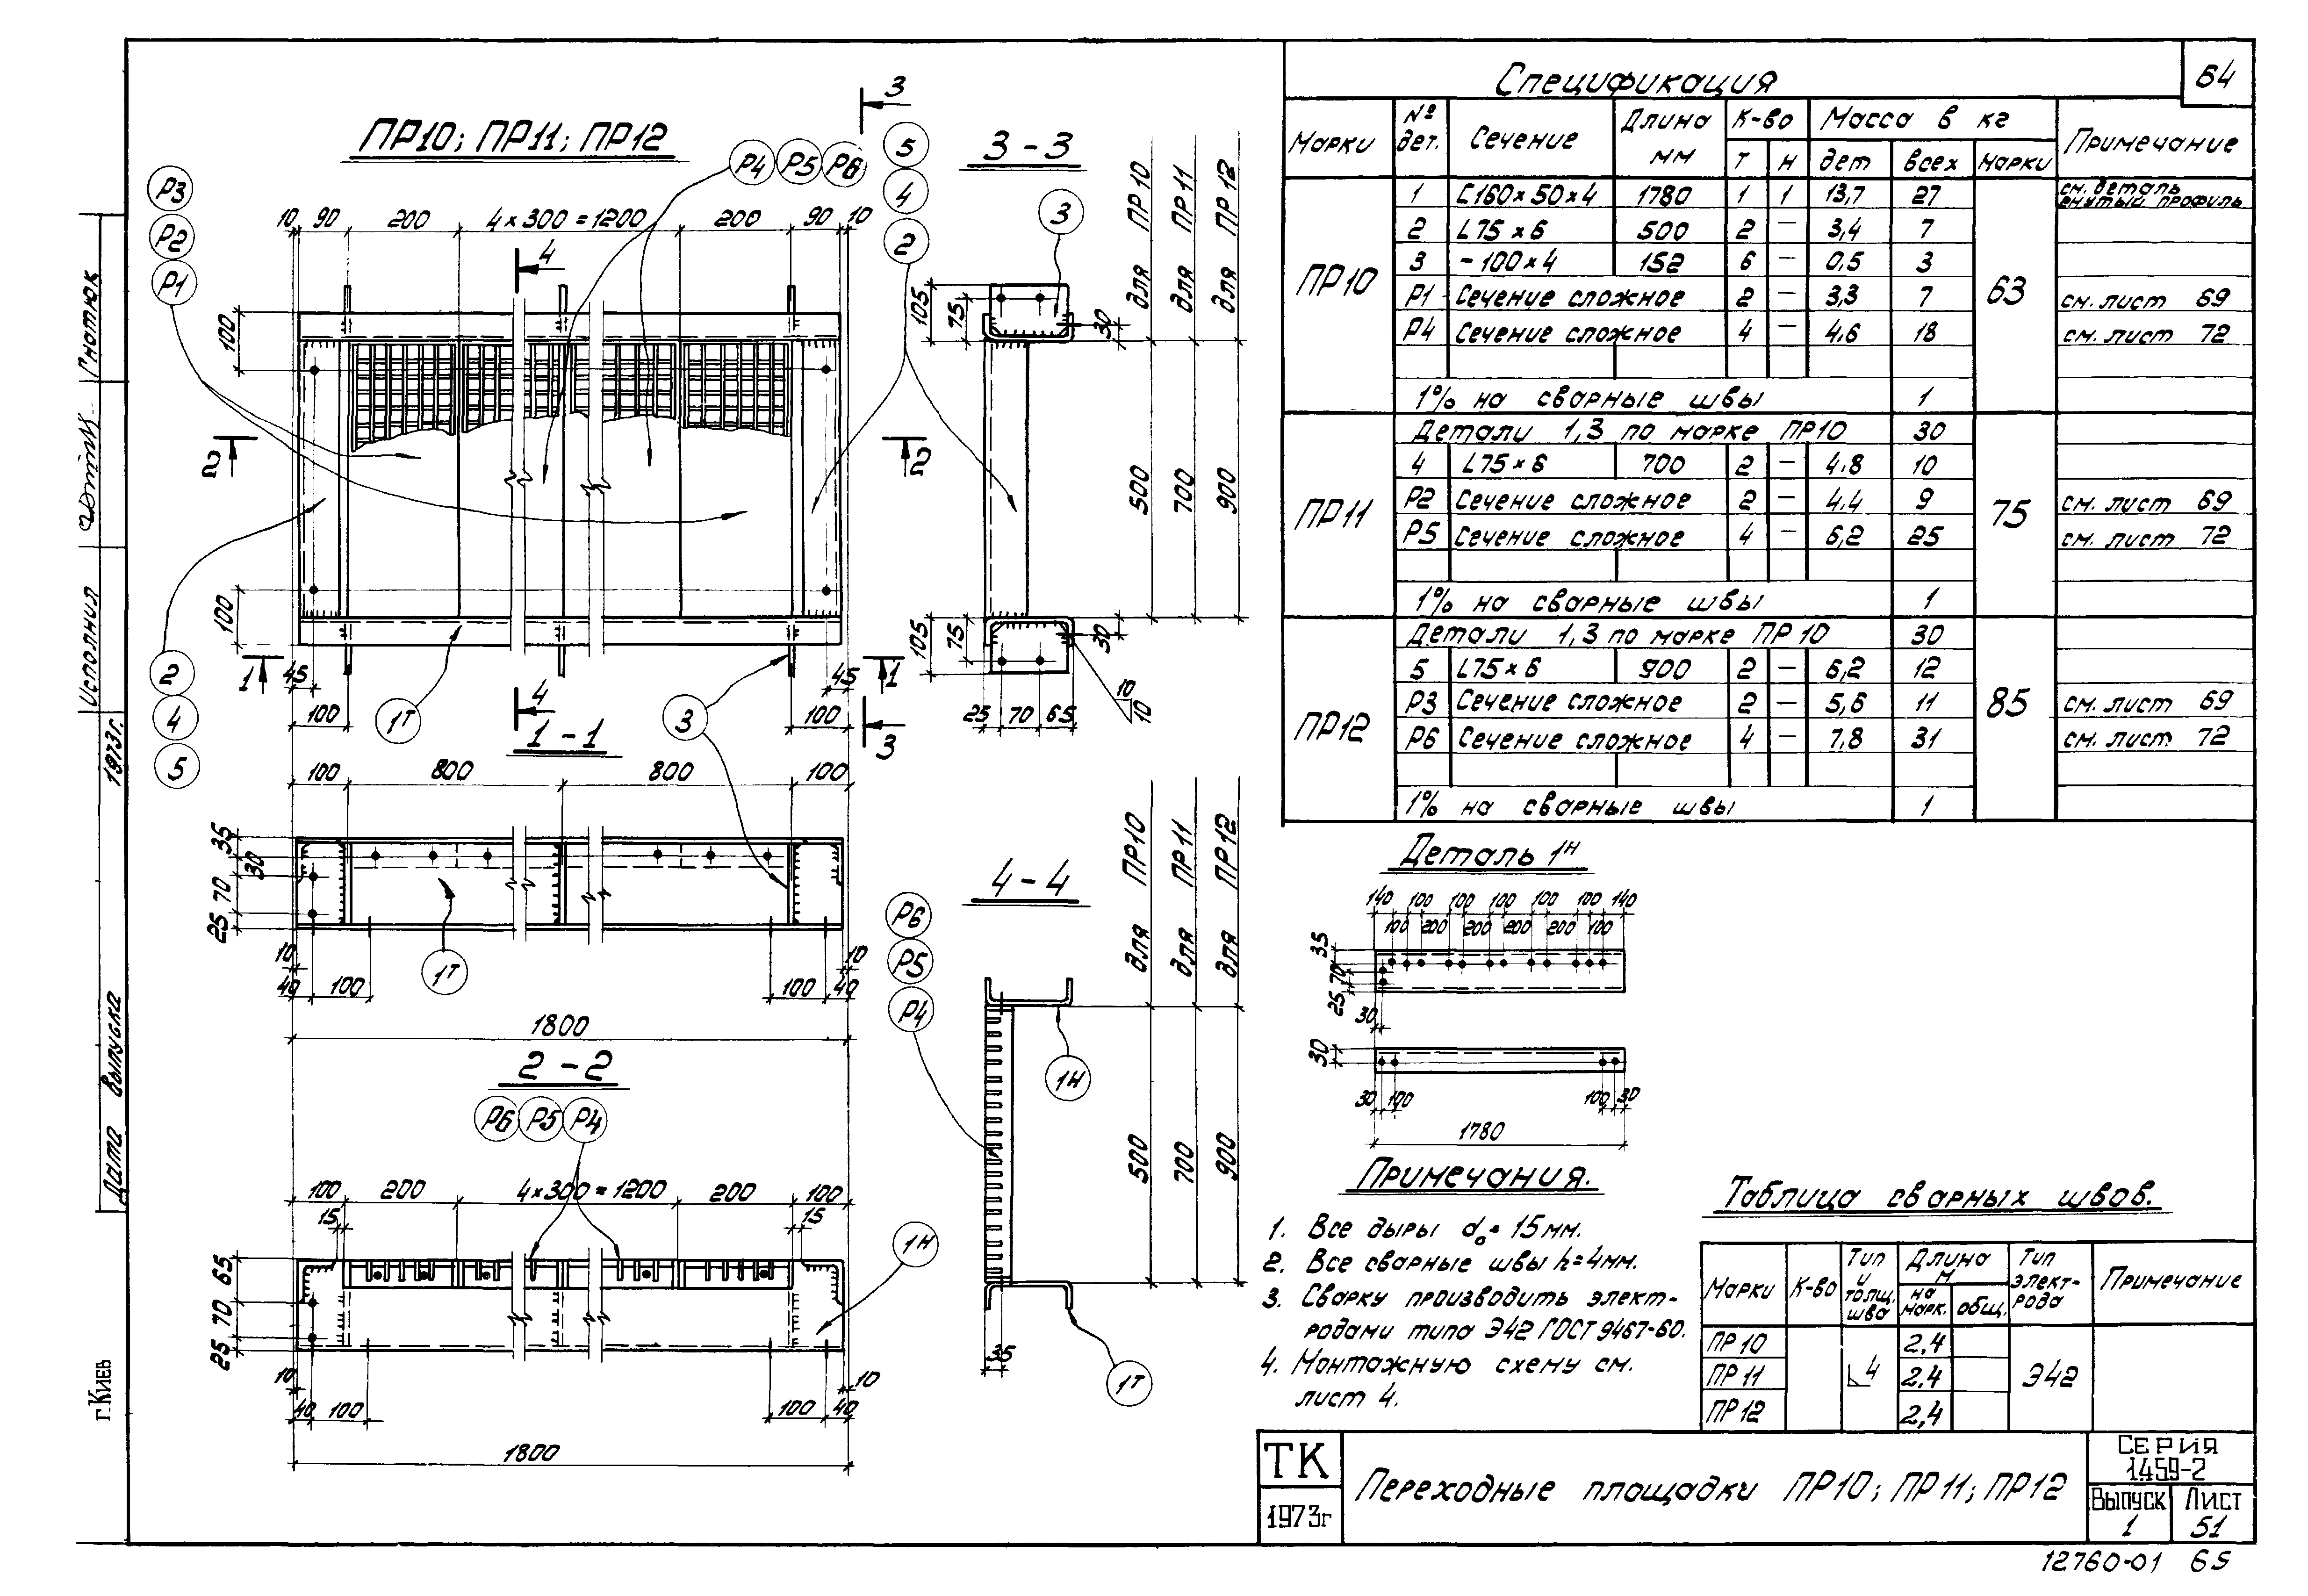 64
Спецификация
Марки № дет. Сечение Длина мм К-во Масса в кг Примечание
т н дет всех марки
ПР10 63
1 [160×50×4 1780 1 1 13,7 27 см. деталь гнутый профиль
2 L75×6 500 2 — 3,4 7
3 -100×4 152 6 — 0,5 3
Р1 Сечение сложное 2 — 3,3 7 см. лист 69
Р4 Сечение сложное 4 — 4,6 18 см. лист 72
1% на сварные швы 1
ПР11 75
Детали 1,3 по марке ПР10 30
4 L75×6 700 2 — 4,8 10
Р2 Сечение сложное 2 — 4,4 9 см. лист 69
Р5 Сечение сложное 4 — 6,2 25 см. лист 72
1% на сварные швы 1
ПР12 85
Детали 1,3 по марке ПР10 30
5 L75×6 900 2 — 6,2 12
Р3 Сечение сложное 2 — 5,6 11 см. лист 69
Р6 Сечение сложное 4 — 7,8 31 см. лист 72
1% на сварные швы 1
ПР10; ПР11; ПР12
Р4 Р5 Р6
3
5
4
2
Р3
Р2
Р1
10 90 200 4×300=1200 200 90 10
4
100
2 2
100
1 1
45 45
4
100 100
1т
3
3
2
4
5
1-1
100 800 800 100
35
30
70
25
1т
10 10
40 100 100 40
1800
2-2
Р6 Р5 Р4
100 200 4×300=1200 200 100
15 15
1н
65
70
25
10 10
40 100 100 40
1800
3-3
3
для ПР10
для ПР11
для ПР12
105
75
30
500
700
900
105
75
30
25 70 65
10
10
4-4
Р6
Р5
Р4
для ПР10
для ПР11
для ПР12
500
700
900
1н
35
1т
Деталь 1н
140 100 100 100 100 100 140
100 200 200 200 200 100
35
70
25
30
30
30 100 100 30
1780
Примечания.
1. Все дыры d₀=15мм.
2. Все сварные швы h=4мм.
3. Сварку производить элект-
родами типа Э42 ГОСТ 9467-60.
4. Монтажную схему см.
лист 4.
Таблица сварных швов.
Марки К-во Тип и толщ. шва Длина м Тип элект-рода Примечание
на марк. общ.
ПР10 2,4
ПР11 4 2,4 Э42
ПР12 2,4
ТК
1973г
Переходные площадки ПР10; ПР11; ПР12
Серия
1.459-2
Выпуск
1
Лист
51
12760-01 65
Гнатюк
Исполния
1973г.
Дата выпуска
г. Киев